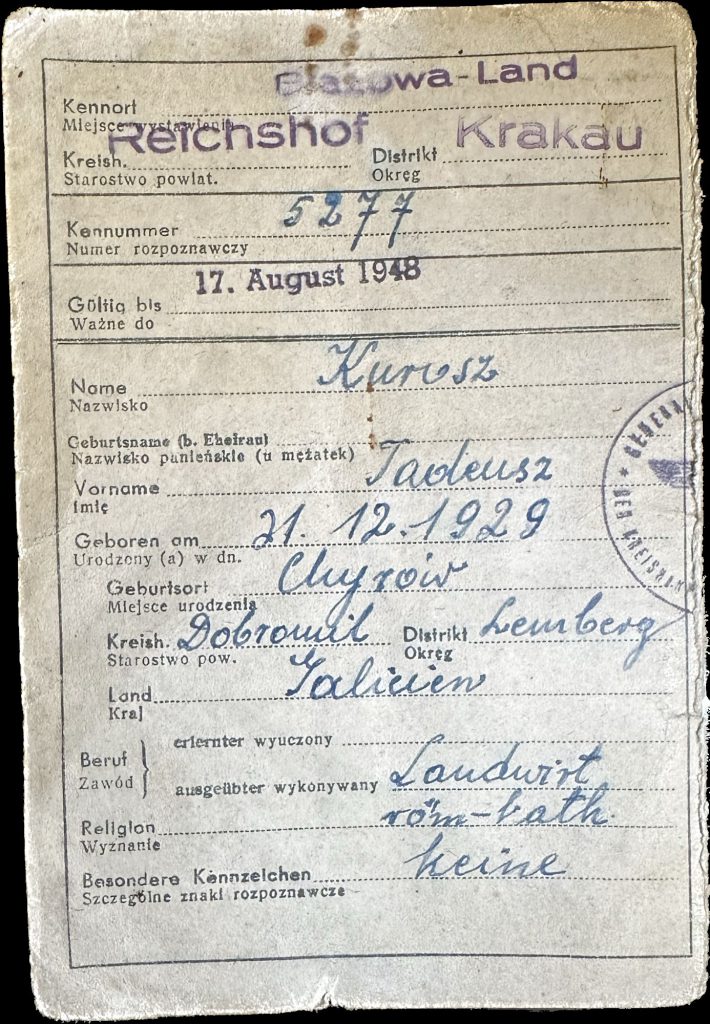 Błażowa-Land
Kennort
Miejsce wystawienia
Reichshof Krakau
Kreish. Distrikt
Starostwo powiat. Okręg
5277
Kennummer
Numer rozpoznawczy
17. August 1948
Gültig bis
Ważne do
Name Kurosz
Nazwisko
Geburtsname (b. Ehefrau)
Nazwisko panieńskie (u mężatek)
Vorname Tadeusz
Imię
Geboren am 21. 12. 1929
Urodzony (a) w dn.
Geburtsort Chyrów
Miejsce urodzenia
Kreish. Dobromil Distrikt Lemberg
Starostwo pow. Okręg
Land Galicien
Kraj
Beruf erlernter wyuczony
Zawód ausgeübter wykonywany Landwirt
Religion röm-kath.
Wyznanie
Besondere Kennzeichen keine
Szczególne znaki rozpoznawcze